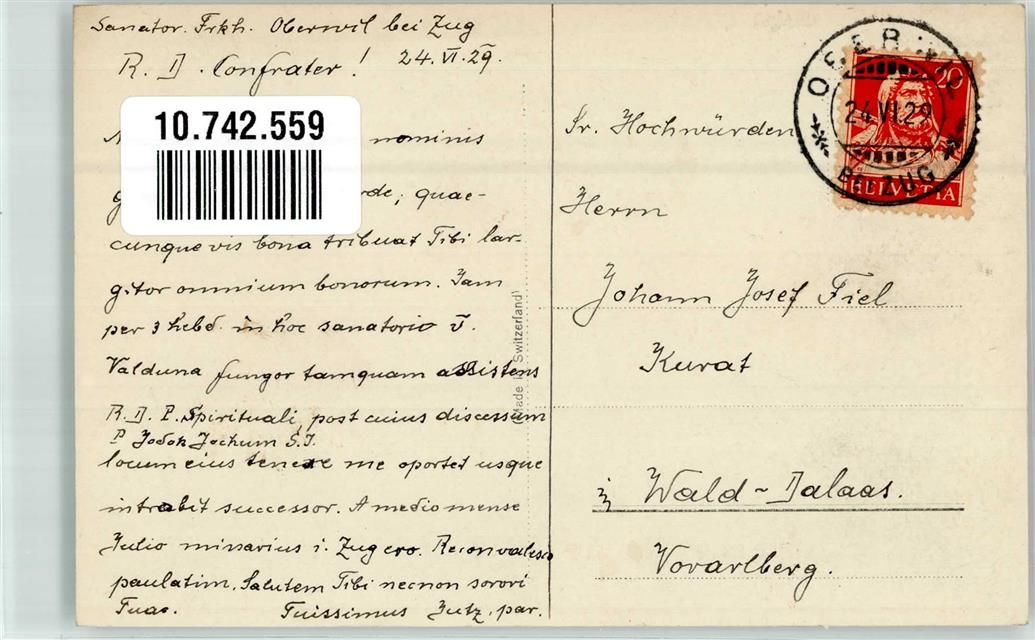 Sanator. Frkh. Oberwil bei Zug
R. D. Confrater! 24.VI.29.
10.742.559
nominis
quae-
cunque vis bona tribuat Tibi lar-
gitor omnium bonorum. Jam
per 3 hebd. in hoc sanatorio
Valduna fungor tamquam assistens
R. D. P. Spirituali, post cuius discessum
P. Jodok Jochum S.J.
locum eius tenere me oportet usque
intrabit successor. A medio mense
Julio missarius i. Zug ero. Reconvalesco
paulatim. Salutem Tibi necnon sorori
Tuae. Tuissimus Jutz, par.
(Made in Switzerland)
OBERWIL
24.VI.29
BEI ZUG
20
HELVETIA
Sr. Hochwürden
Herrn
Johann Josef Fiel
Kurat
in Wald-Dalaas.
Vorarlberg.